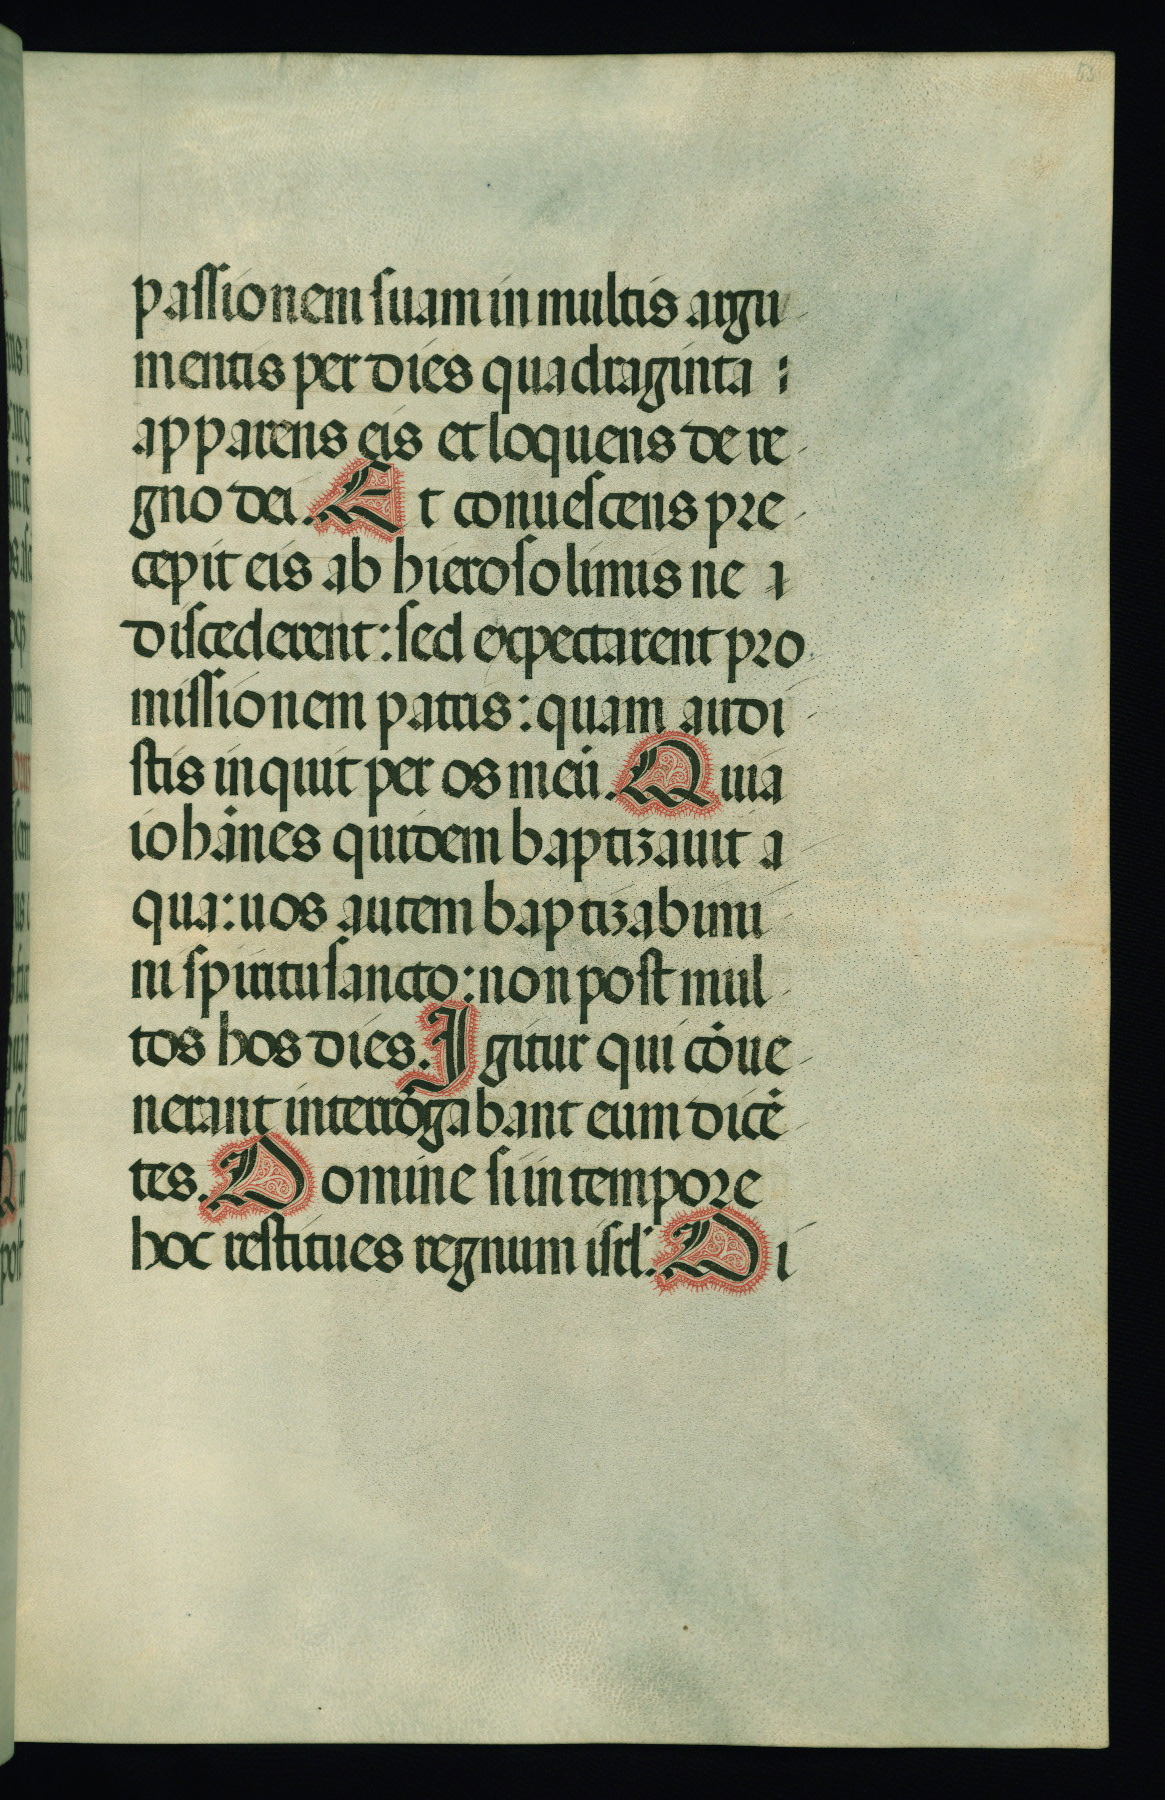 passionem suam in multis argu
mentis per dies quadraginta :
apparens eis et loquens de re
gno dei. Et conuescens pre
cepit eis ab hierosolimis ne
discederent: sed expectarent pro
missionem patris: quam audi
stis inquit per os meū. Quia
iohānes quidem baptizauit a
qua: uos autem baptizabimi
ni spiritu sancto: non post mul
tos hos dies. Igitur qui cōue
nerant interrogabant eum dicē
tes. Domine si in tempore
hoc restitues regnum isrl. Di